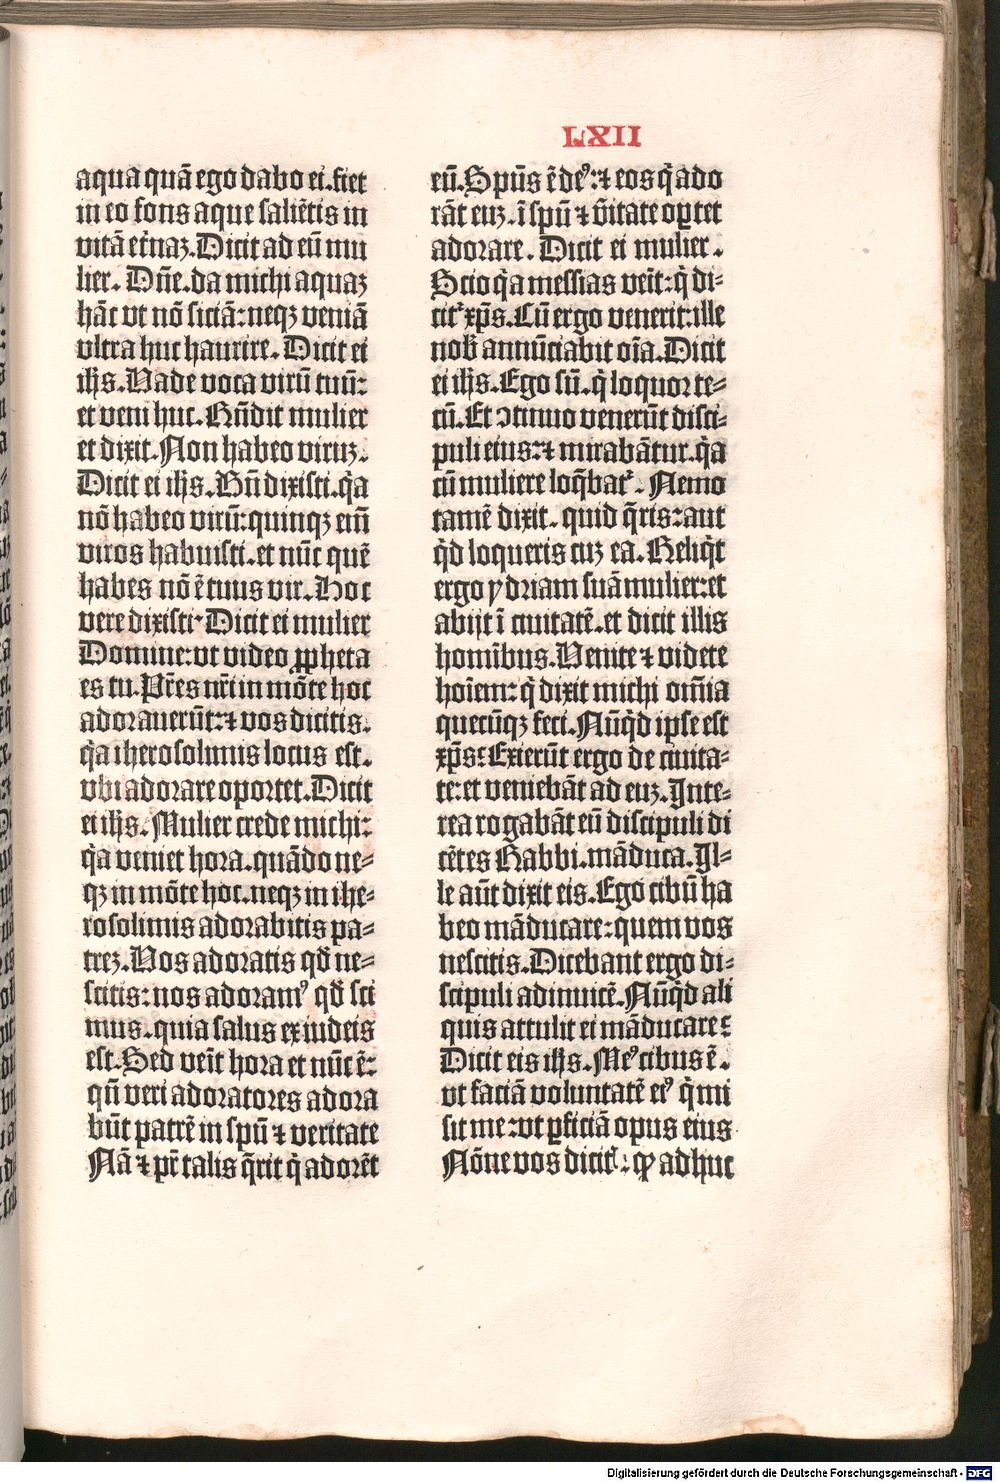 LXII
aqua quā ego dabo ei. fiet
in eo fons aque saliētis in
vitā et̄naꝫ. Dicit ad eū mu
lier. Dn̄e. da michi aquaꝫ
hāc vt nō siciā: neqꝫ veniā
vltra huc haurire. Dicit ei
ih̄s. Vade voca virū tuū:
et veni huc. Rn̄dit mulier
et dixit. Non habeo viruꝫ.
Dicit ei ih̄s. Bn̄ dixisti. q̄a
nō habeo virū: quinqꝫ eni̅
viros habuisti. et nūc quē
habes nō ē tuus vir. Hoc
vere dixisti. Dicit ei mulier
Domine: vt video ꝓpheta
es tu. Pr̄es nr̄i in mōte hoc
adorauerūt: ⁊ vos dicitis.
q̄a iherosolimis locus est.
vbi adorare oportet. Dicit
ei ih̄s. Mulier crede michi:
q̄a veniet hora. quādo ne⸗
qꝫ in mōte hoc. neqꝫ in ihe⸗
rosolimis adorabitis pa⸗
treꝫ. Vos adoratis qd̄ ne⸗
scitis: nos adoramꝰ qd̄ sci
mus. quia salus ex iudeis
est. Sed venīt hora et nūc ē:
qn̄ veri adoratores adora
būt patrē in spū ⁊ veritate
Nā ⁊ pr̄ talis q̄rit q̄ adorēt
eū. Spūs ē deꝰ: ⁊ eos q̄ ado
rāt euꝫ. ī spū ⁊ v̄itate oꝑtet
adorare. Dicit ei mulier.
Scio q̄a messias venīt: q̄ di⸗
citᷣ xp̄s. Cū ergo venerit: ille
nob̄ annūciabit oīa. Dicit
ei ih̄s. Ego sū. q̄ loquor te⸗
cū. Et ↄtinuo venerūt disci⸗
puli eius: ⁊ mirabātur. q̄a
cū muliere loq̄batᷣ. Nemo
tamē dixit. quid q̄ris: aut
qd̄ loqueris cuꝫ ea. Reliq̄t
ergo ydriam suā mulier: et
abijt ī ciuitatē. et dicit illis
homībus. Venite ⁊ videte
hoīem: q̄ dixit michi omīa
quecūqꝫ feci. Nūqd̄ ipse est
xp̄s? Exierūt ergo de ciuita⸗
te: et veniebāt ad euꝫ. Inte⸗
rea rogabāt eū discipuli di
cētes Rabbi. māduca. Il⸗
le aūt dixit eis. Ego cibū ha
beo māducare: quem vos
nescitis. Dicebant ergo di⸗
scipuli adinuicē. Nūqd̄ ali
quis attulit ei māducare?
Dicit eis ih̄s. Meꝰ cibus ē.
vt faciā voluntatē eiꝰ q̄ mi
sit me: vt ꝑficiā opus eius
Nōne vos dicitᷣ: ꝙ adhuc
Digitalisierung gefördert durch die Deutsche Forschungsgemeinschaft - DFG